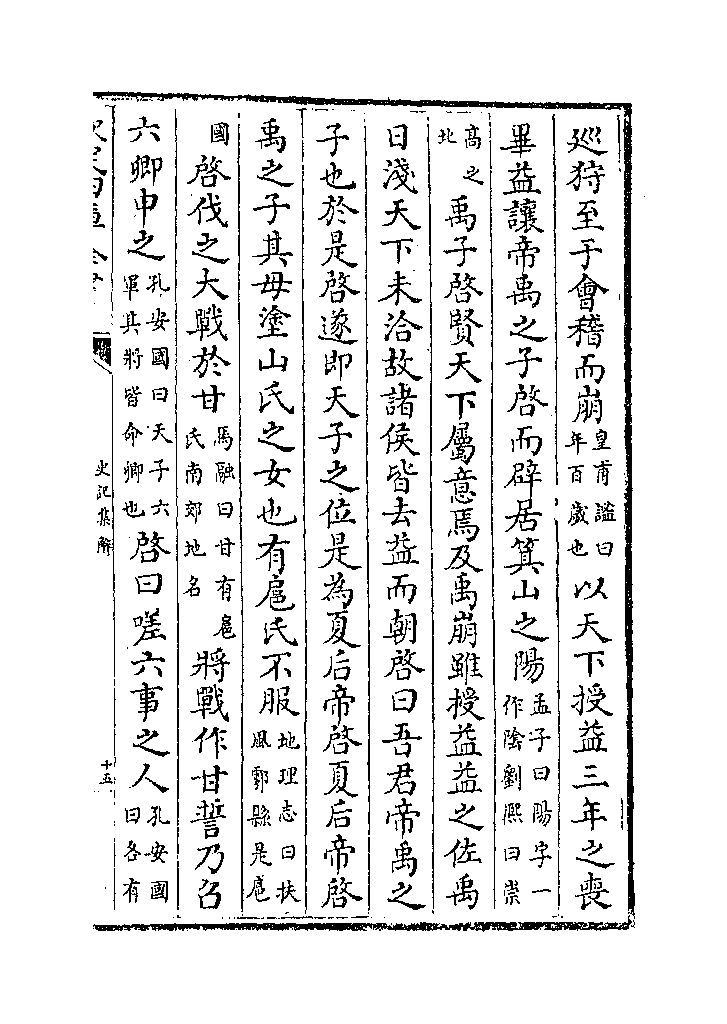 巡狩至于會稽而崩皇甫謐曰年百歲也以天下授益三年之喪
畢益讓帝禹之子啓而辟居箕山之陽孟子曰陽字一作陰劉熙曰崇
高之北禹子啓賢天下屬意焉及禹崩雖授益益之佐禹
日淺天下未洽故諸侯皆去益而朝啓曰吾君帝禹之
子也於是啓遂即天子之位是為夏后帝啓夏后帝啓
禹之子其母塗山氏之女也有扈氏不服地理志曰扶風鄠縣是扈
國啓伐之大戰於甘馬融曰甘有扈氏南郊地名將戰作甘誓乃召
六卿申之孔安國曰天子六軍其將皆命卿也啓曰嗟六事之人孔安國曰各有
史記集解
十五